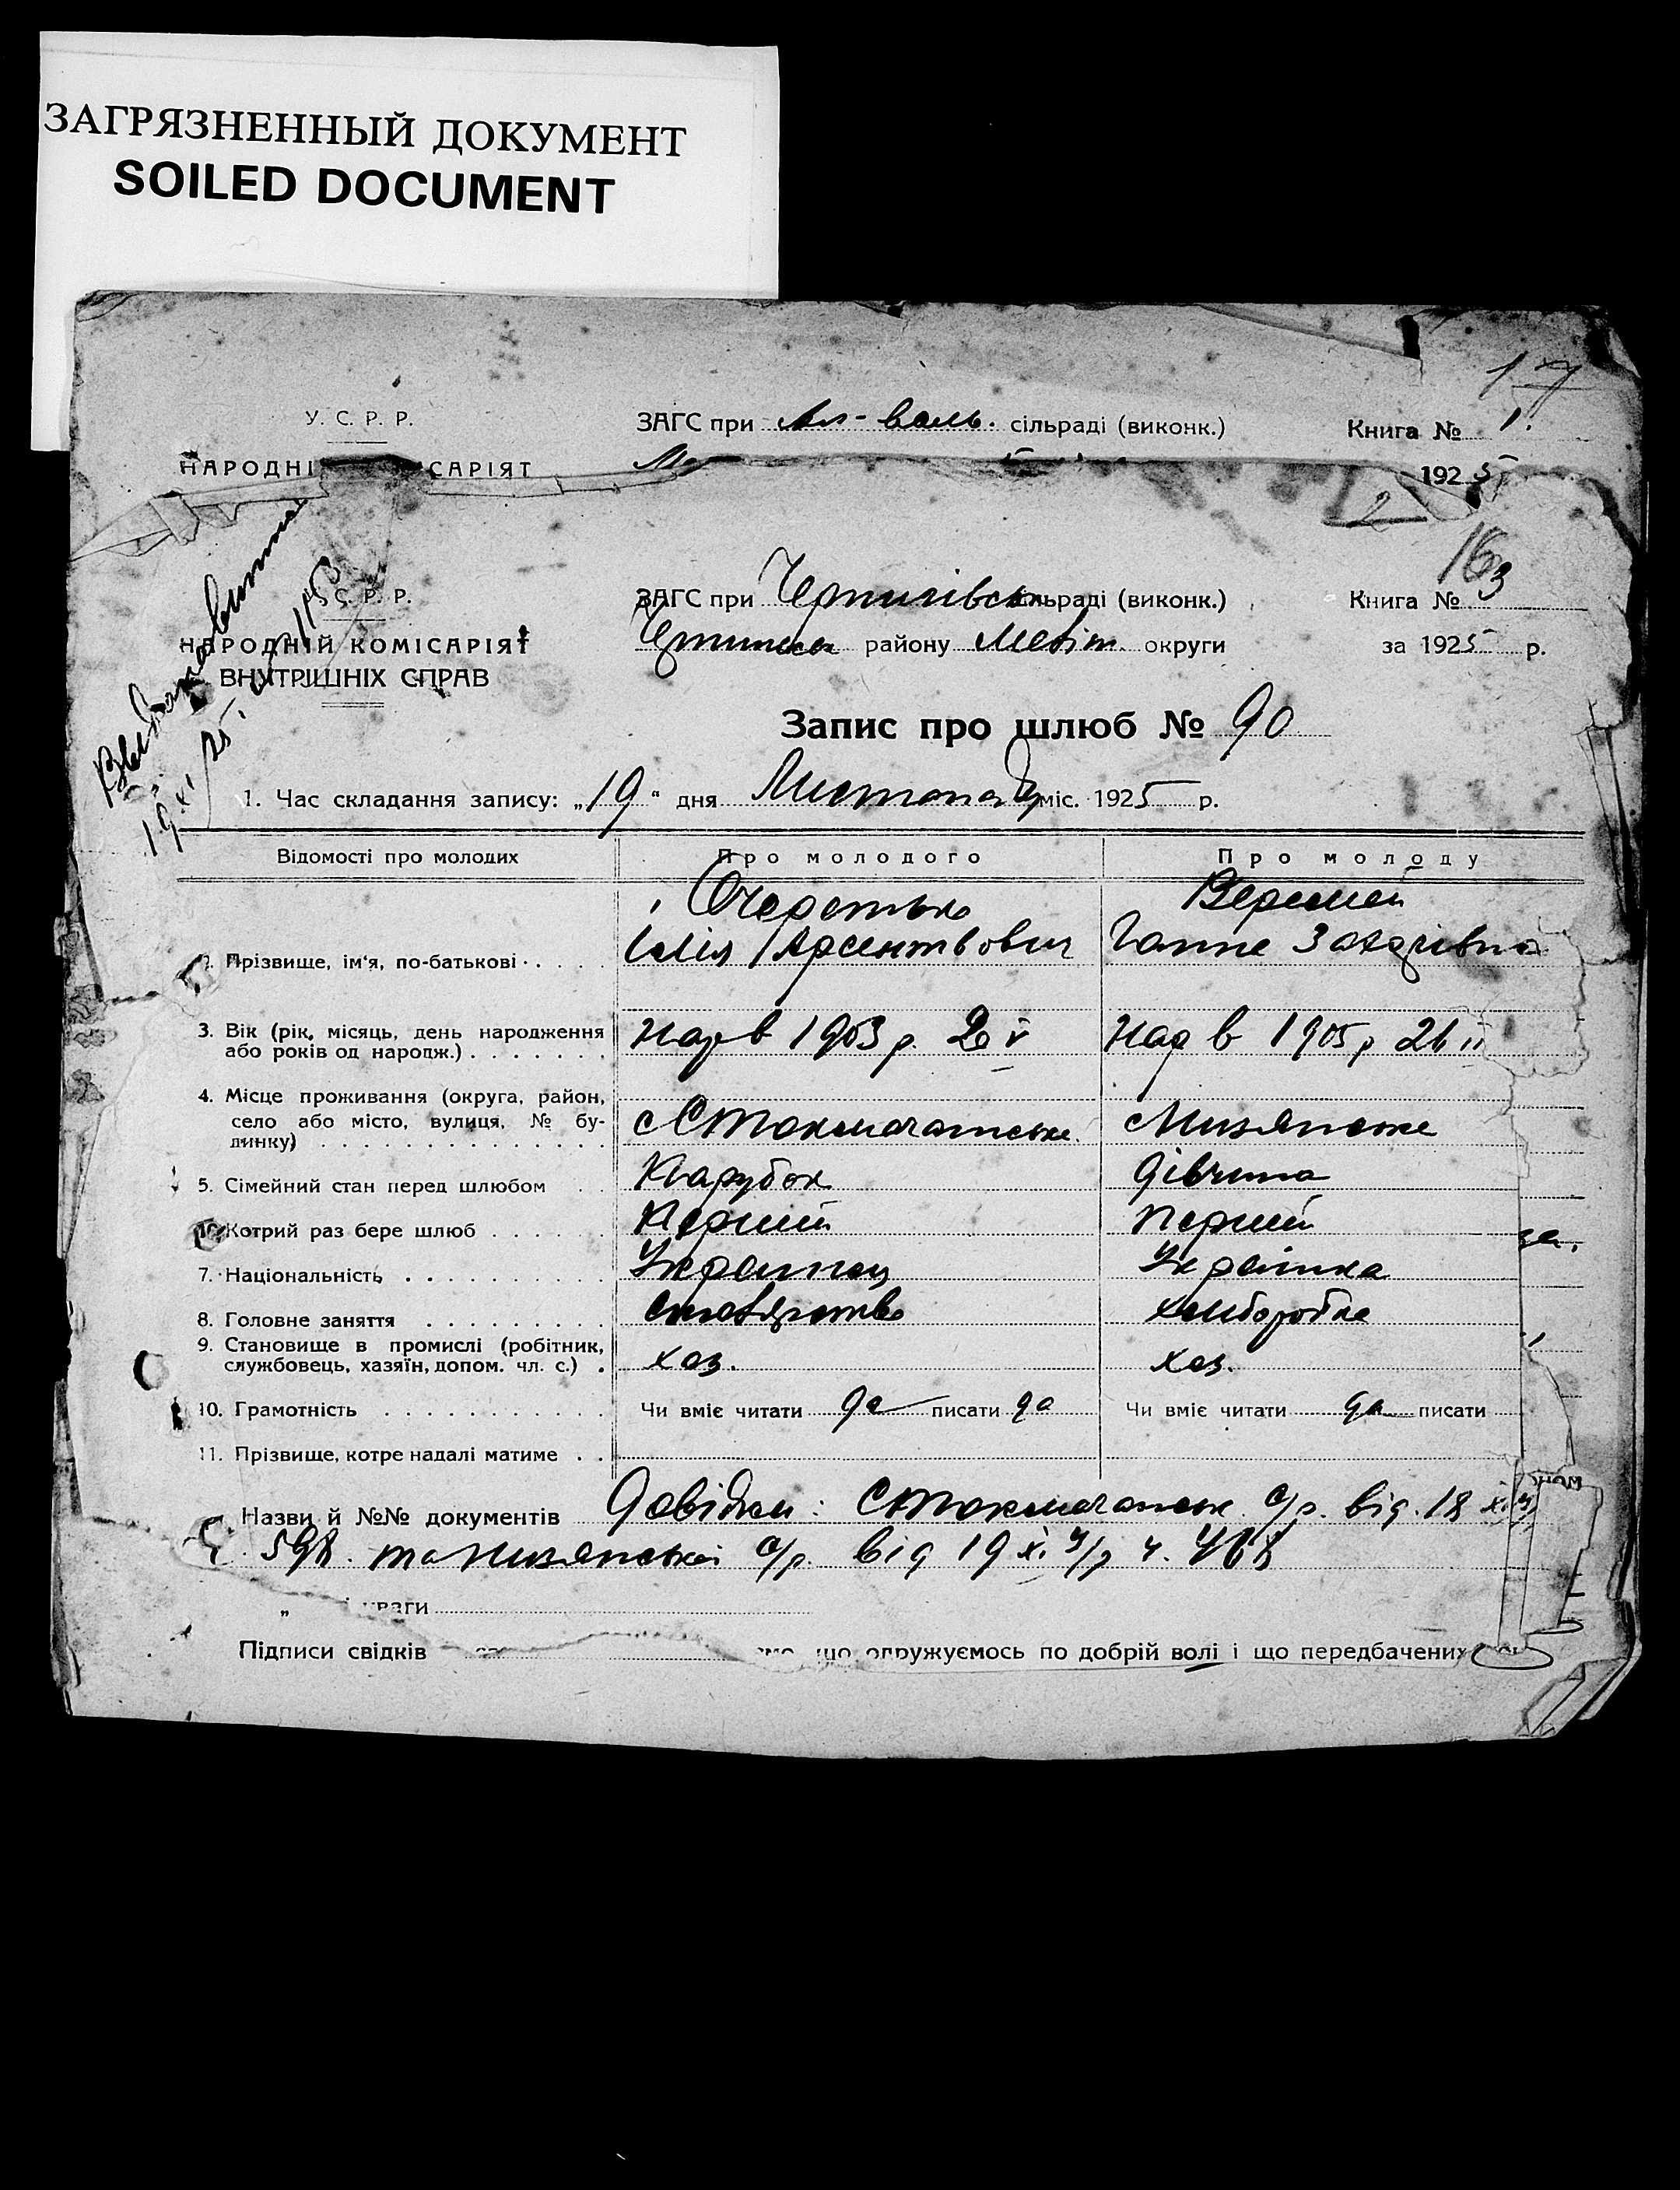 ЗАГРЯЗНЕННЫЙ ДОКУМЕНТ
SOILED DOCUMENT
17
У. С. Р. Р.
ЗАГС при сільраді (виконк.)
Книга № 1.
НАРОДНІ САРІЯТ
1925
2
16
С. Р. Р.
ЗАГС при Чернигівськ сільраді (виконк.)
Книга № 3
НАРОДНІЙ КОМІСАРІЯТ
району Меліт. округи
за 1925 р.
ВНУТРІШНІХ СПРАВ
Запис про шлюб № 90
1. Час складання запису: „19“ дня Листопада міс. 1925 р.
Відомості про молодих
Про молодого
Про молоду
Очеретько
Веремей
Прізвище, ім'я, по-батькові
Ілія Арсентьович
Ганна
3. Вік (рік, місяць, день народження
або років од народж.)
Нар в 1903 р.
Нар в 1905 р
4. Місце проживання (округа, район,
село або місто, вулиця, № бу-
динку)
с Стокмачанське
с Низянське
5. Сімейний стан перед шлюбом
Парубок
Дівчина
Котрий раз бере шлюб
Перший
Перший
7. Національність
Украинец
Українка
8. Головне заняття
хліборобка
9. Становище в промислі (робітник,
службовець, хазяїн, допом. чл. с.)
хаз.
хаз.
10. Грамотність
Чи вміє читати да писати да
Чи вміє читати да писати
11. Прізвище, котре надалі матиме
Назви й №№ документів Довідки: Стокмачанськ с/р. від. 18
598. та Низянської с/р. від 19 XI ч. 468
уваги
Підписи свідків
що одружуємось по добрій волі і що передбачених